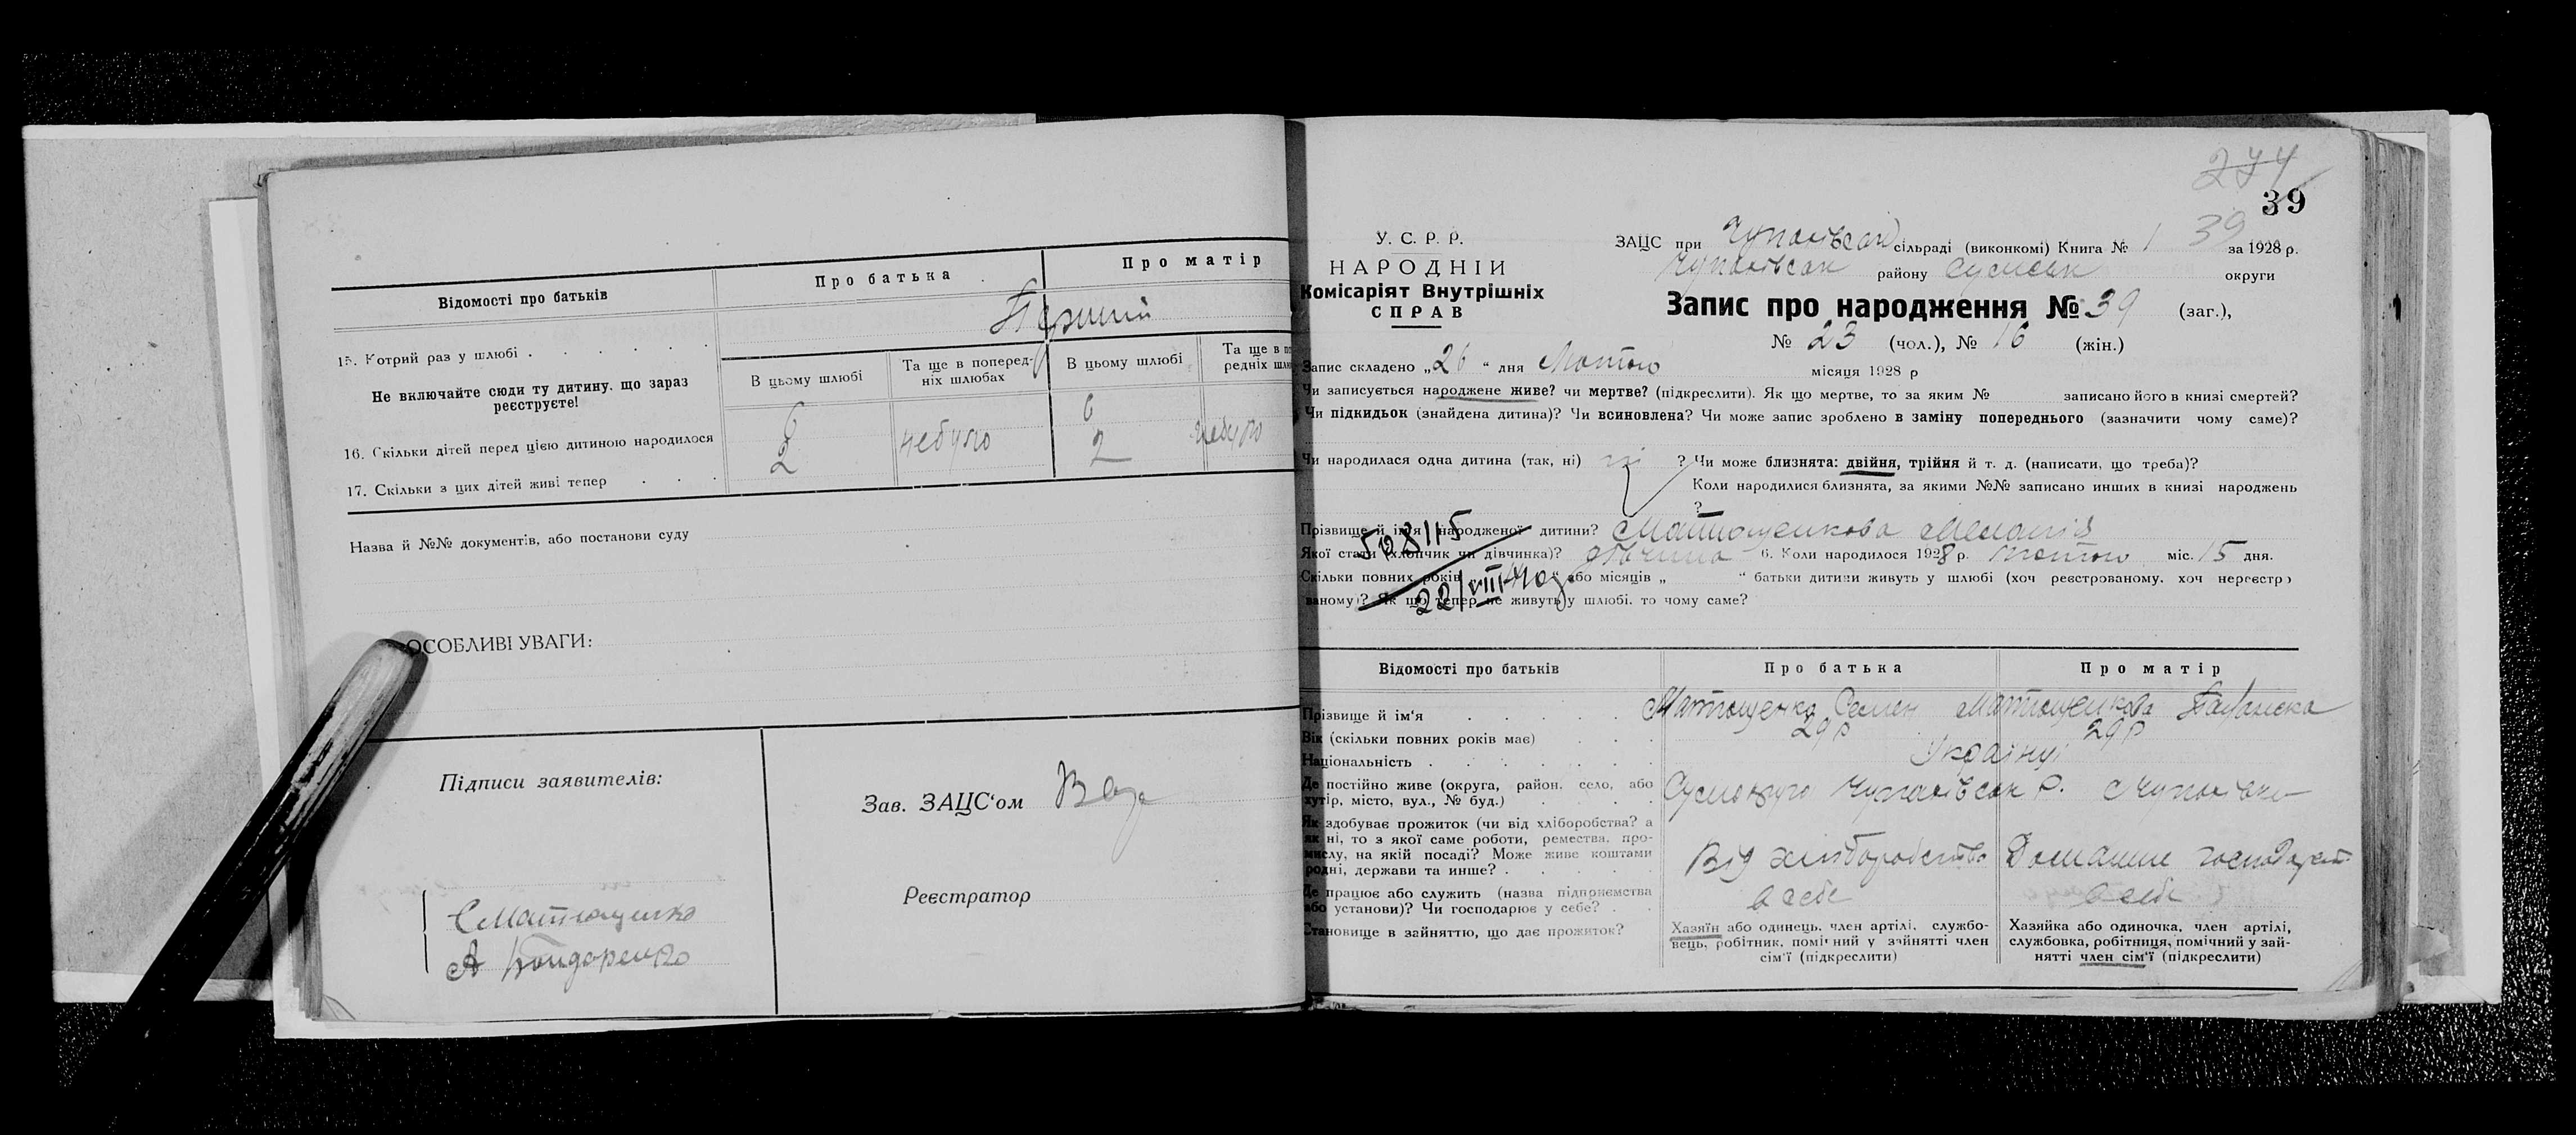 Відомості про батьків
Про батька
Про матір
15. Котрий раз у шлюбі
Перший
Не включайте сюди ту дитину, що зараз реєструєте!
В цьому шлюбі
Та ще в поперед-
ніх шлюбах
В цьому шлюбі
Та ще в по
редніх шлю
16. Скільки дітей перед цією дитиною народилося
6
небуло
6
небуло
17. Скільки з цих дітей живі тепер
2
2
Назва й №№ документів, або постанови суду
ОСОБЛИВІ УВАГИ:
Підписи заявителів:
Зав. ЗАЦС‘ом
Реєстратор
С Матющенко
А Бондаренко
274
39
У. С. Р. Р.
НАРОДНІЙ
Комісаріят Внутрішніх
СПРАВ
ЗАЦС при Чупахівськ сільраді (виконкомі) Книга № 1 39 за 1928 р.
Чупахівськ району Сумськ округи
Запис про народження № 39 (заг.),
№ 23 (чол.), № 16 (жін.)
Запис складено „26“ дня Лютого місяця 1928 р
Чи записується народжене живе? чи мертве? (підкреслити). Як що мертве, то за яким № записано його в книзі смертей?
Чи підкидьок (знайдена дитина)? Чи всиновлена? Чи може запис зроблено в заміну попереднього (зазначити чому саме)?
Чи народилася одна дитина (так, ні) ні ? Чи може близнята: двійня, трійня й т. д. (написати, що треба)?
Коли народилися близнята, за якими №№ записано инших в книзі народжень
?
Прізвище й ім‘я народженої дитини? Матющенкова Меланія
Якої стати (хлопчик чи дівчинка)? дівчина 6. Коли народилося 1928 р. лютого міс. 15 дня.
Скільки повних років „ “ або місяців „ “ батьки дитини живуть у шлюбі (хоч реєстрованому, хоч нереєстро
ваному)? Як що тепер не живуть у шлюбі, то чому саме?
22/VIII
Відомості про батьків
Про батька
Про матір
Прізвище й ім‘я
Матющенко Семен
Матющенкова
Вік (скільки повних років має)
29 р
29 р
Національність
Українці
Де постійно живе (округа, район, село, або
хутір, місто, вул., № буд.)
Чупахівськ р. Чупахівка
Як здобуває прожиток (чи від хліборобства? а
як ні, то з якої саме роботи, ремества, про-
мислу, на якій посаді? Може живе коштами
родні, держави та инше?
Від хліборобства
Домашнє господарст.
Де працює або служить (назва підприємства
або установи)? Чи господарює у себе?
в себе
в себе
Становище в зайняттю, що дає прожиток?
Хазяїн або одинець, член артілі, службо-
вець, робітник, помічний у зайнятті член
сім‘ї (підкреслити)
Хазяйка або одиночка, член артілі,
службовка, робітниця, помічний у зай-
нятті член сім‘ї (підкреслити)